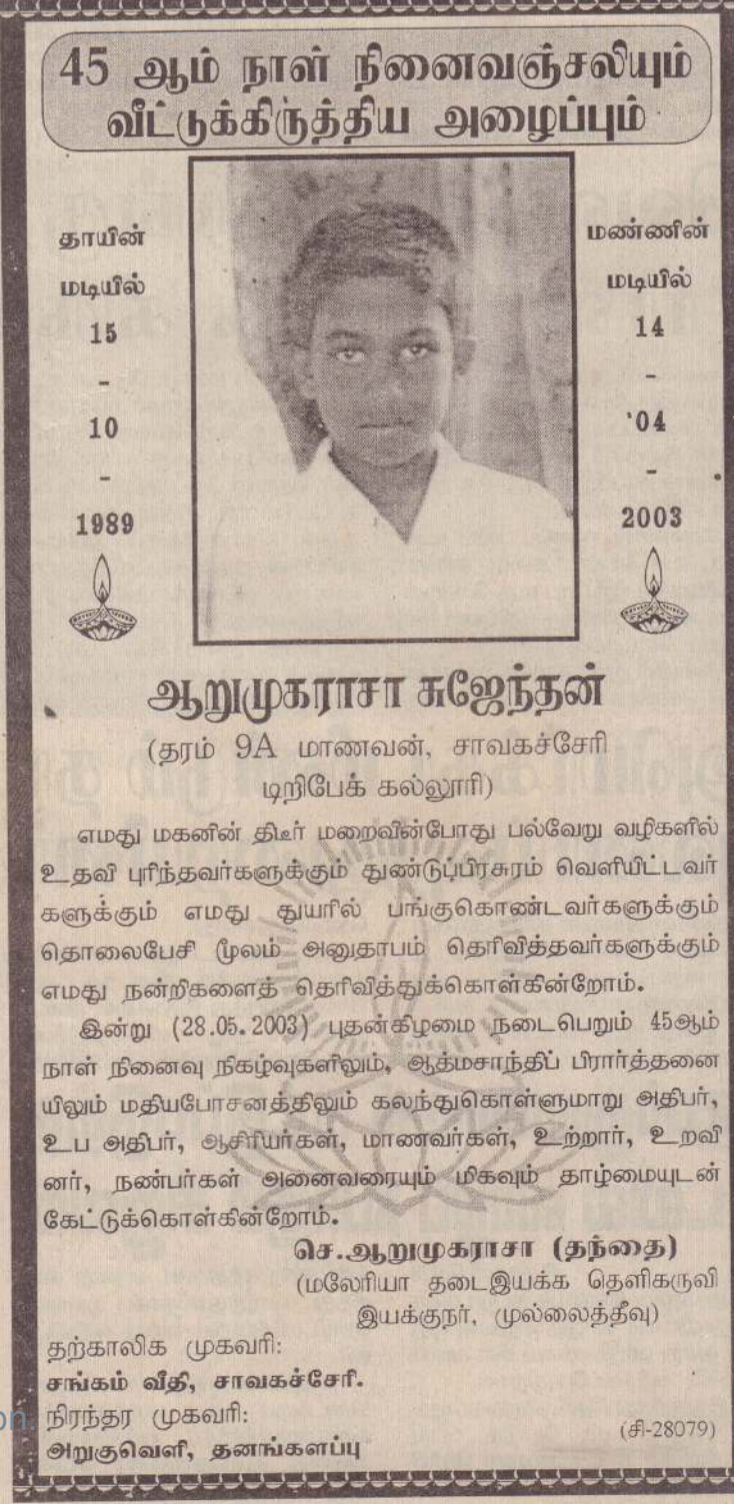 45 ஆம் நாள் நினைவஞ்சலியும்
வீட்டுக்கிருத்திய அழைப்பும்
தாயின்
மடியில்
15
-
10
-
1989
மண்ணின்
மடியில்
14
-
'04
-
2003
ஆறுமுகராசா சுஜேந்தன்
(தரம் 9A மாணவன், சாவகச்சேரி
டிறிபேக் கல்லூரி)
எமது மகனின் திடீர் மறைவின்போது பல்வேறு வழிகளில்
உதவி புரிந்தவர்களுக்கும் துண்டுப்பிரசுரம் வெளியிட்டவர்
களுக்கும் எமது துயரில் பங்குகொண்டவர்களுக்கும்
தொலைபேசி மூலம் அனுதாபம் தெரிவித்தவர்களுக்கும்
எமது நன்றிகளைத் தெரிவித்துக்கொள்கின்றோம்.
இன்று (28.05.2003) புதன்கிழமை நடைபெறும் 45ஆம்
நாள் நினைவு நிகழ்வுகளிலும், ஆத்மசாந்திப் பிரார்த்தனை
யிலும் மதியபோசனத்திலும் கலந்துகொள்ளுமாறு அதிபர்,
உப அதிபர், ஆசிரியர்கள், மாணவர்கள், உற்றார், உறவி
னர், நண்பர்கள் அனைவரையும் மிகவும் தாழ்மையுடன்
கேட்டுக்கொள்கின்றோம்.
செ.ஆறுமுகராசா (தந்தை)
(மலேரியா தடைஇயக்க தெளிகருவி
இயக்குநர், முல்லைத்தீவு)
தற்காலிக முகவரி:
சங்கம் வீதி, சாவகச்சேரி.
நிரந்தர முகவரி:
அறுகுவெளி, தனங்களப்பு
(சி-28079)